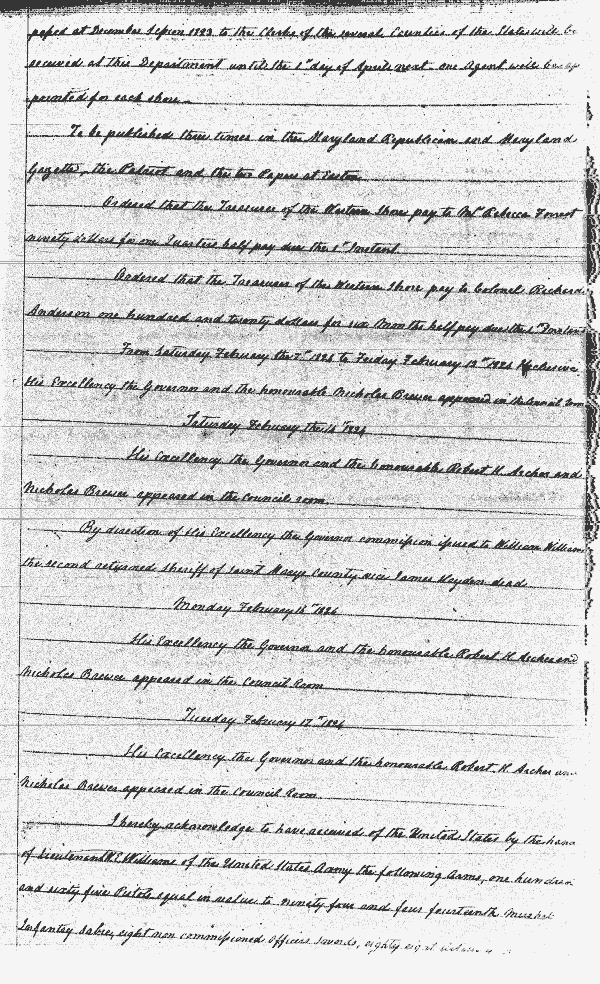 passed at December Session 1823 to the Clerks of the several Counties of the State will be
received at this Department until the 1st day of April next. one Agent will be ap
pointed for each shore.
To be published three times in the Maryland Republican and Maryland
Gazette, the Patriot and the two Papers at Easton
Ordered that the Treasurer of the Western Shore pay to Mrs Rebecca Forrest
ninety dollars for one Quarters half pay due the 1st Instant
Ordered that the Treasurer of the Western Shore pay to Colonel Richard
Anderson one hundred and twenty dollars for six Months half pay due the 1st Instant
From Saturday February the 7th 1824 to Friday February 13th 1824 Inclusive
His Excellency the Governor and the honourable Nicholas Brewer appeared in the Council Room
Saturday February the 14th 1824
His Excellency the Governor and the honourable Robert H. Archer and
Nicholas Brewer appeared in the Council room.
By direction of His Excellency the Governor commission issued to William Williams
the second returned Sheriff of Saint Marys County vice James Hayden dead
Monday February 16th 1824
His Excellency the Governor and the honourable Robert H. Archer and
Nicholas Brewer appeared in the Council Room
Tuesday February 17th 1824
His Excellency the Governor and the honourable Robert H Archer and
Nicholas Brewer appeared in the Council Room.
I hereby acknowledge to have received of the United States by the hand
of Lieutenant W. C. Williams of the United States Army the following Arms, one hundred
and sixty five Pistols equal in value to ninety four and four fourteenth Musket
Infantry Sabre, eight non commissioned officers swords, eighty eight